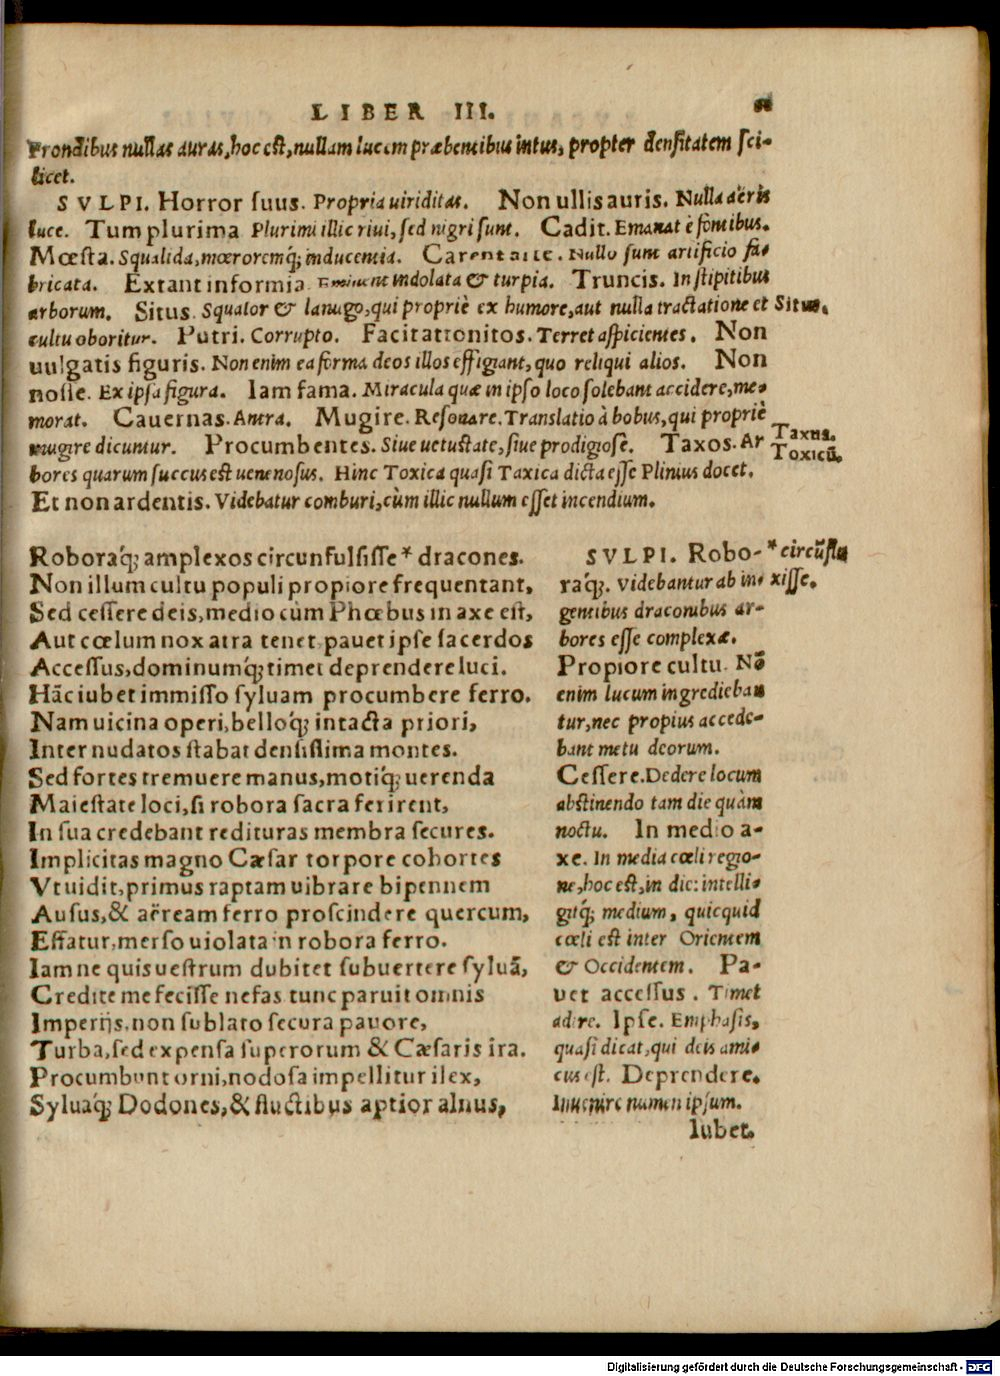 LIBER III.
Frondibus nullas auras, hoc est, nullam lucem præbentibus intus, propter densitatem sci-
licet.
SVLPI. Horror suus. Propria uiriditas. Non ullis auris. Nulla aëris
luce. Tum plurima Plurimi illic riui, sed nigri sunt. Cadit. Emanat è fontibus.
Mœsta. Squalida, mœroremq́; inducentia. Carent arte. Nullo sunt artificio fa-
bricata. Extant informia Eminent indolata & turpia. Truncis. In stipitibus
arborum. Situs. Squalor & lanugo, qui propriè ex humore, aut nulla tractatione et
Situs.
cultu oboritur. Putri. Corrupto. Facit attonitos. Terret aspicientes. Non
uulgatis figuris. Non enim ea forma deos illos effigiant, quo reliqui alios. Non
nosse. Ex ipsa figura. Iam fama. Miracula quæ in ipso loco solebant accidere, me-
morat. Cauernas. Antra. Mugire. Resonare. Translatio à bobus, qui propriè
mugire dicuntur. Procumbentes. Siue uetustate, siue prodigiose. Taxos. Ar
Taxus.
Toxicũ.
bores quarum succus est uenenosus. Hinc Toxica quasi Taxica dicta esse Plinius docet.
Et non ardentis. Videbatur comburi, cùm illic nullum esset incendium.
Roboraq́; amplexos circunfulsisse * dracones.
Non illum cultu populi propiore frequentant,
Sed cessere deis, medio cùm Phœbus in axe est,
Aut cœlum nox atra tenet, pauet ipse sacerdos
Accessus, dominumq́; timet deprendere luci.
Hãc iubet immisso syluam procumbere ferro.
Nam uicina operi, belloq́; intacta priori,
Inter nudatos stabat densissima montes.
Sed fortes tremuere manus, motiq́; uerenda
Maiestate loci, si robora sacra ferirent,
In sua credebant redituras membra secures.
Implicitas magno Cæsar torpore cohortes
Vt uidit, primus raptam uibrare bipennem
Ausus, & aëream ferro proscindere quercum,
Effatur, merso uiolata in robora ferro.
Iam ne quis uestrum dubitet subuertere syluã,
Credite me fecisse nefas tunc paruit omnis
Imperijs, non sublato secura pauore,
Turba, sed expensa superorum & Cæsaris ira.
Procumbunt orni, nodosa impellitur ilex,
Syluaq́; Dodones, & fluctibus aptior alnus,
SVLPI. Robo-
raq́;. Videbantur ab in-
gentibus draconibus ar-
bores esse complexæ.
Propiore cultu. Nõ
enim lucum ingredieban
tur, nec propius accede-
bant metu deorum.
Cessere. Dedere locum
abstinendo tam die quàm
noctu. In medio a-
xe. In media cœli regio-
ne, hoc est, in die: intelli-
gitq́; medium, quicquid
cœli est inter Orientem
& Occidentem. Pa-
uet accessus. Timet
adire. Ipse. Emphasis,
quasi dicat, qui deis ami-
cus est. Deprendere.
Inuenire numen ipsum.
* circũfle
xisse.
Iubet.
Digitalisierung gefördert durch die Deutsche Forschungsgemeinschaft - DFG